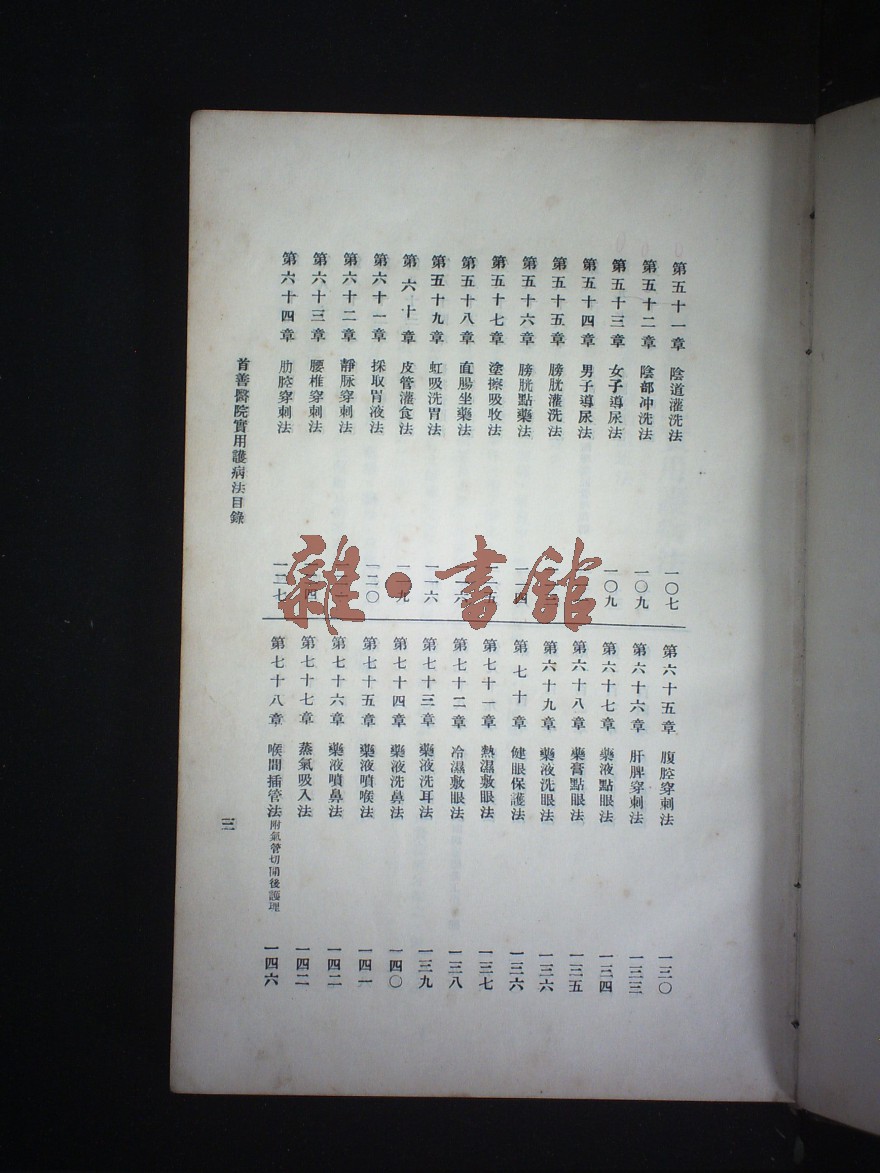 第五十一章 陰道灌洗法 一〇七
第五十二章 陰部冲洗法 一〇九
第五十三章 女子導尿法 一〇九
第五十四章 男子導尿法
第五十五章 膀胱灌洗法
第五十六章 膀胱點藥法
第五十七章 塗擦吸收法
第五十八章 直腸坐藥法
第五十九章 虹吸洗胃法 一一六
第六十章 皮管灌食法 一一九
第六十一章 採取胃液法 一二〇
第六十二章 靜脉穿刺法
第六十三章 腰椎穿刺法
第六十四章 肋腔穿刺法 一二七
第六十五章 腹腔穿刺法 一三〇
第六十六章 肝脾穿刺法 一三三
第六十七章 藥液點眼法 一三四
第六十八章 藥膏點眼法 一三五
第六十九章 藥液洗眼法 一三六
第七十章 健眼保護法 一三六
第七十一章 熱濕敷眼法 一三七
第七十二章 冷濕敷眼法 一三八
第七十三章 藥液洗耳法 一三九
第七十四章 藥液洗鼻法 一四〇
第七十五章 藥液噴喉法 一四一
第七十六章 藥液噴鼻法 一四二
第七十七章 蒸氣吸入法 一四二
第七十八章 喉間插管法附氣管切開後護理 一四六
首善醫院實用護病法目錄
三
雜·書館